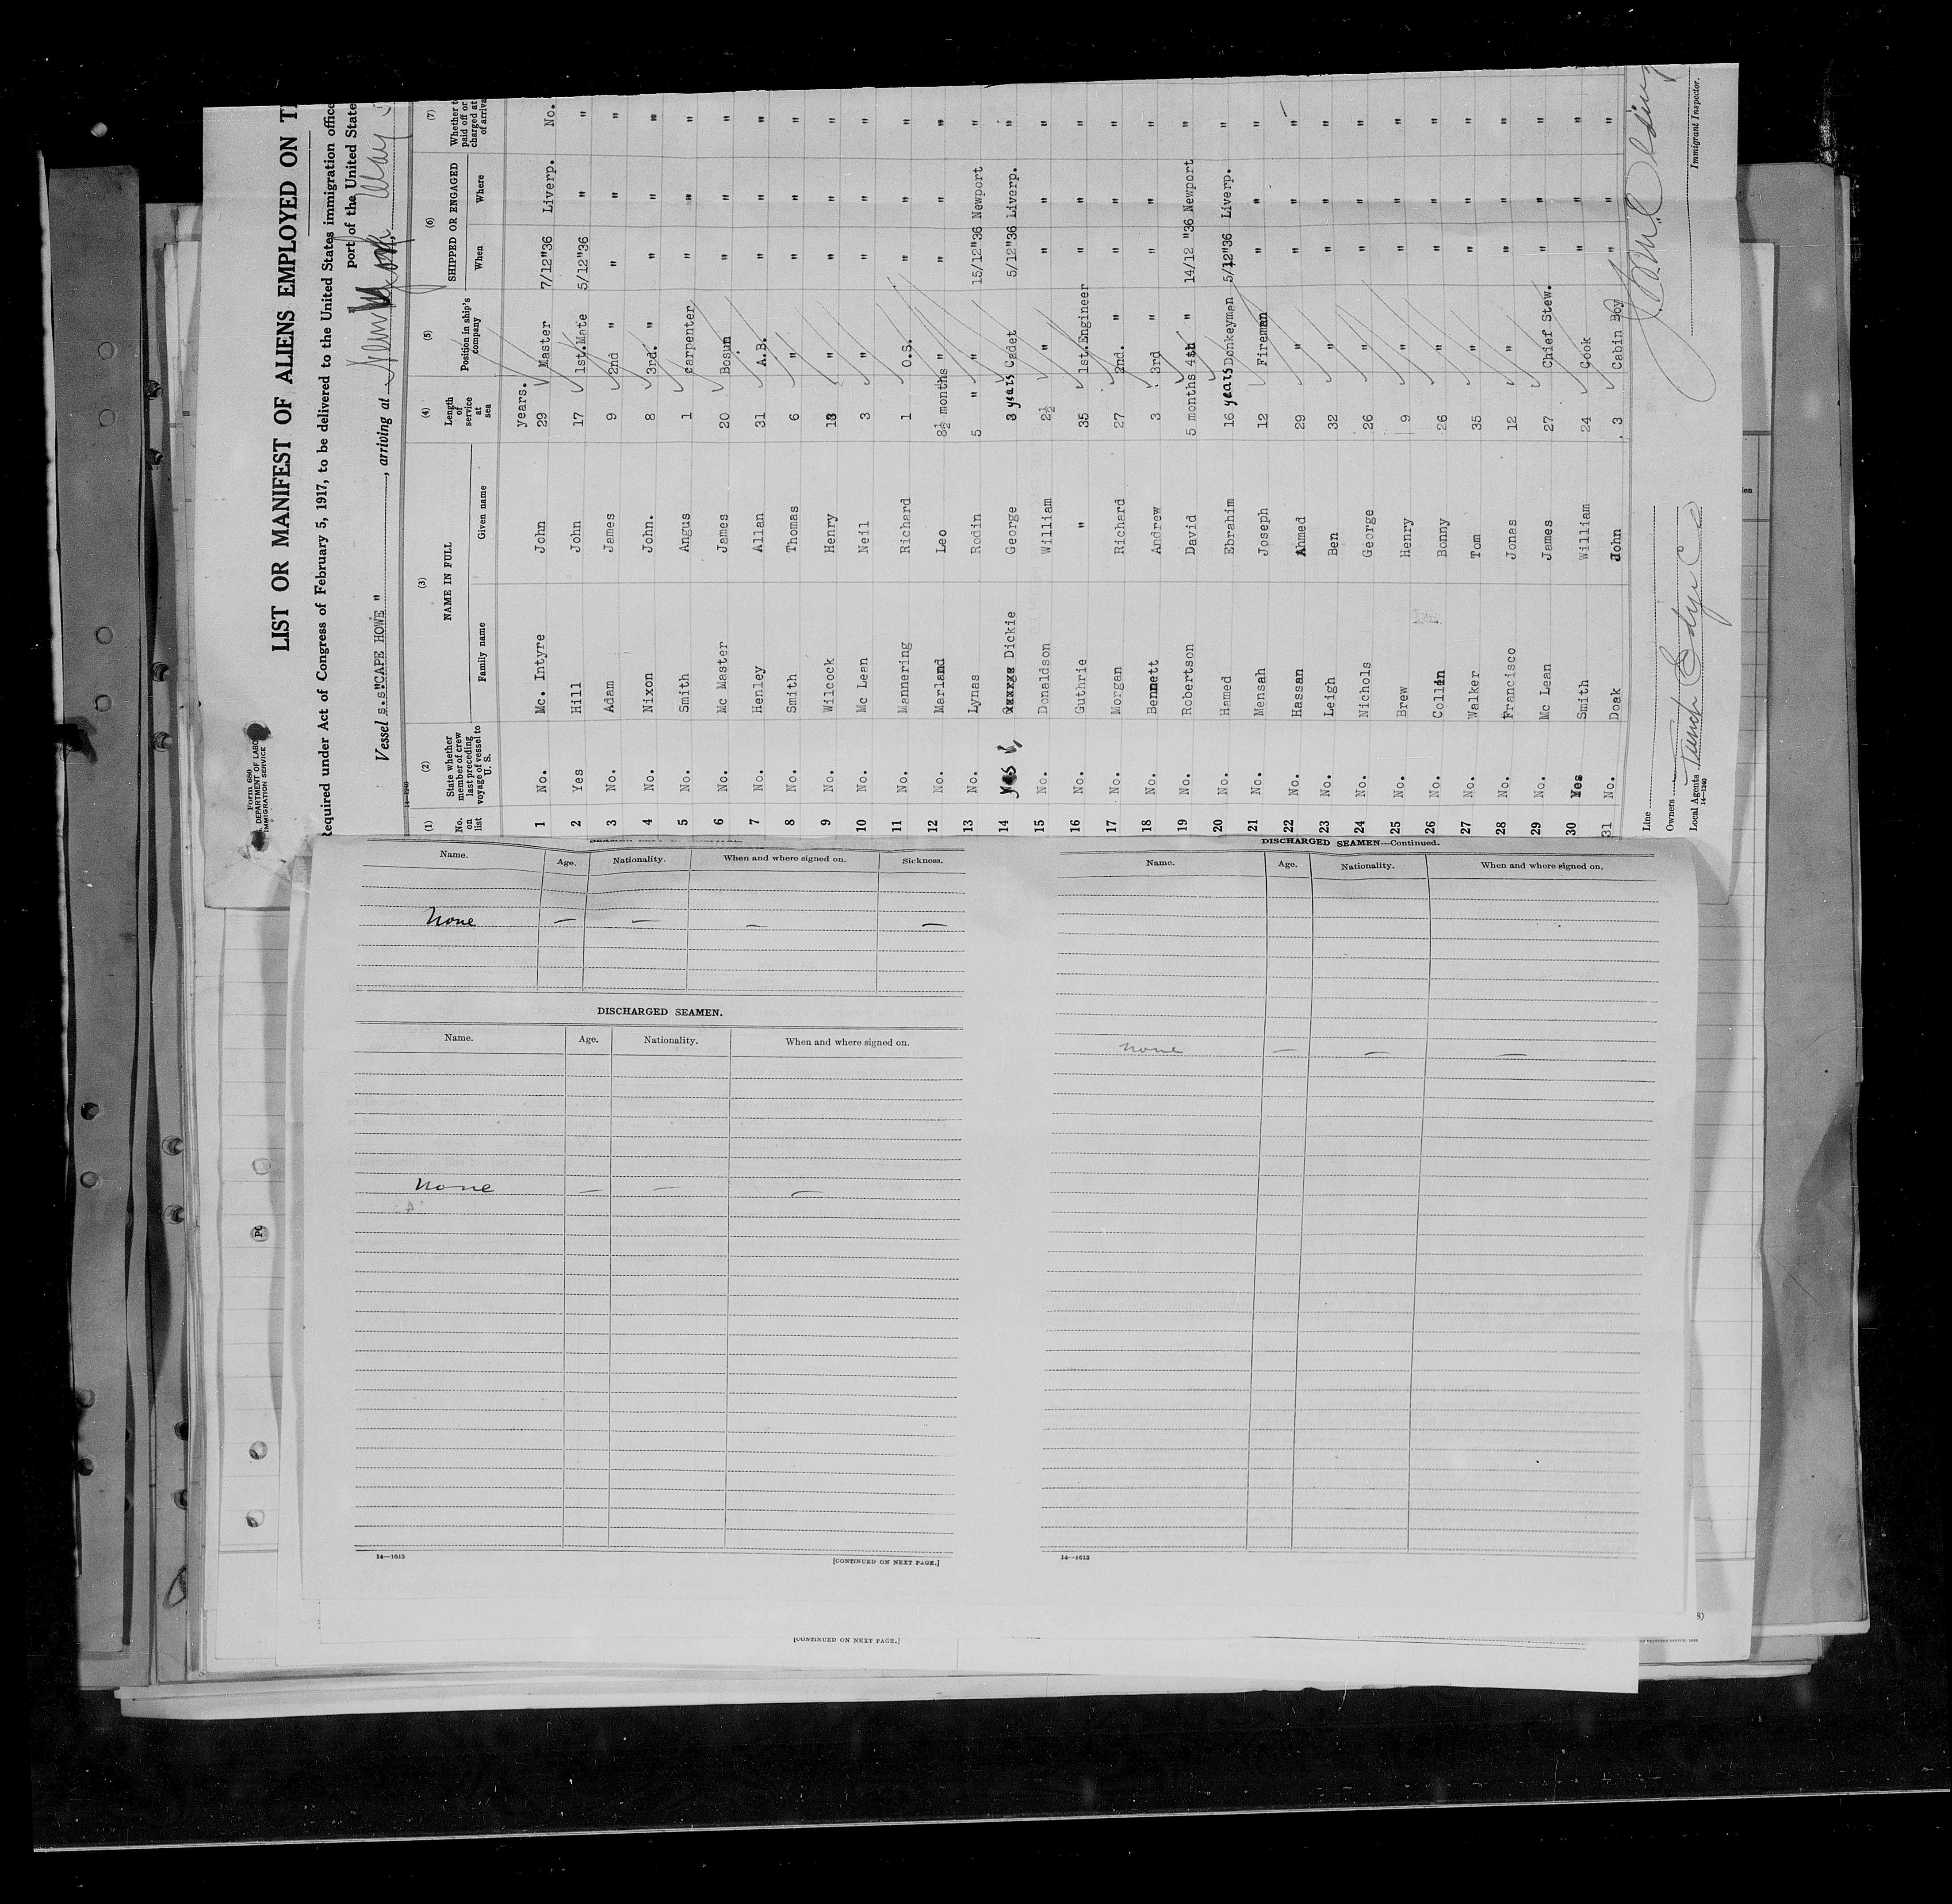 Form 680
DEPARTMENT OF LABOR
IMMIGRATION SERVICE
LIST OR MANIFEST OF ALIENS EMPLOYED ON
Required under Act of Congress of February 5, 1917, to be delivered to the United States immigration office
port of the United State
Vessel s.s"CAPE HOWE", arriving at
14-1240
(1) (2) (3) (4) (5) (6) (7)
No. on list State whether member of crew last preceding voyage of vessel to U. S. NAME IN FULL Family name Given name Length of service at sea Position in ship's company SHIPPED OR ENGAGED When Where Whether paid off or charged at of arriva
years.
1 No. Mc. Intyre John 29 Master 7/12"36 Liverp. No.
2 Yes Hill John 17 1st.Mate 5/12"36 " "
3 No. Adam James 9 2nd " " " "
4 No. Nixon John. 8 3rd. " " " "
5 No. Smith Angus 1 carpenter " " "
6 No. Mc Master James 20 Bosun " " "
7 No. Henley Allan 31 A.B. " " "
8 No. Smith Thomas 6 " " " "
9 No. Wilcock Henry 13 " " " "
10 No. Mc Lean Neil 3 " " " "
11 No. Mannering Richard 1 O.S. " " "
12 No. Marland Leo 8½ months " " " "
13 No. Lynas Rodin 5 " " 15/12"36 Newport "
14 Yes Dickie George 3 years Cadet 5/12"36 Liverp. "
15 No. Donaldson William 2½ " " " "
16 No. Guthrie " 35 1st.Engineer " " "
17 No. Morgan Richard 27 2nd. " " " "
18 No. Bennett Andrew 3 3rd " " " "
19 No. Robertson David 5 months 4th " 14/12 "36 Newport "
20 No. Hamed Ebrahim 16 years Donkeyman 5/12"36 Liverp. "
21 No. Mensah Joseph 12 Fireman " " "
22 No. Hassan Ahmed 29 " " " "
23 No. Leigh Ben 32 " " " "
24 No. Nichols George 26 " " " "
25 No. Brew Henry 9 " " " "
26 No. Collin Bonny 26 " " " "
27 No. Walker Tom 35 " " " "
28 No. Francisco Jonas 12 " " " "
29 No. Mc Lean James 27 Chief Stew. " " "
30 Yes Smith William 24 Cook " " "
31 No. Doak John 3 Cabin Boy " "
Line
Owners
Local Agents
14-1240
Immigrant Inspector.
Name. Age. Nationality. When and where signed on. Sickness.
None — — — —
DISCHARGED SEAMEN.
Name. Age. Nationality. When and where signed on.
None — — —
14—1613
[CONTINUED ON NEXT PAGE.]
DISCHARGED SEAMEN—Continued.
Name. Age. Nationality. When and where signed on.
None — — —
14—1613
[CONTINUED ON NEXT PAGE.]